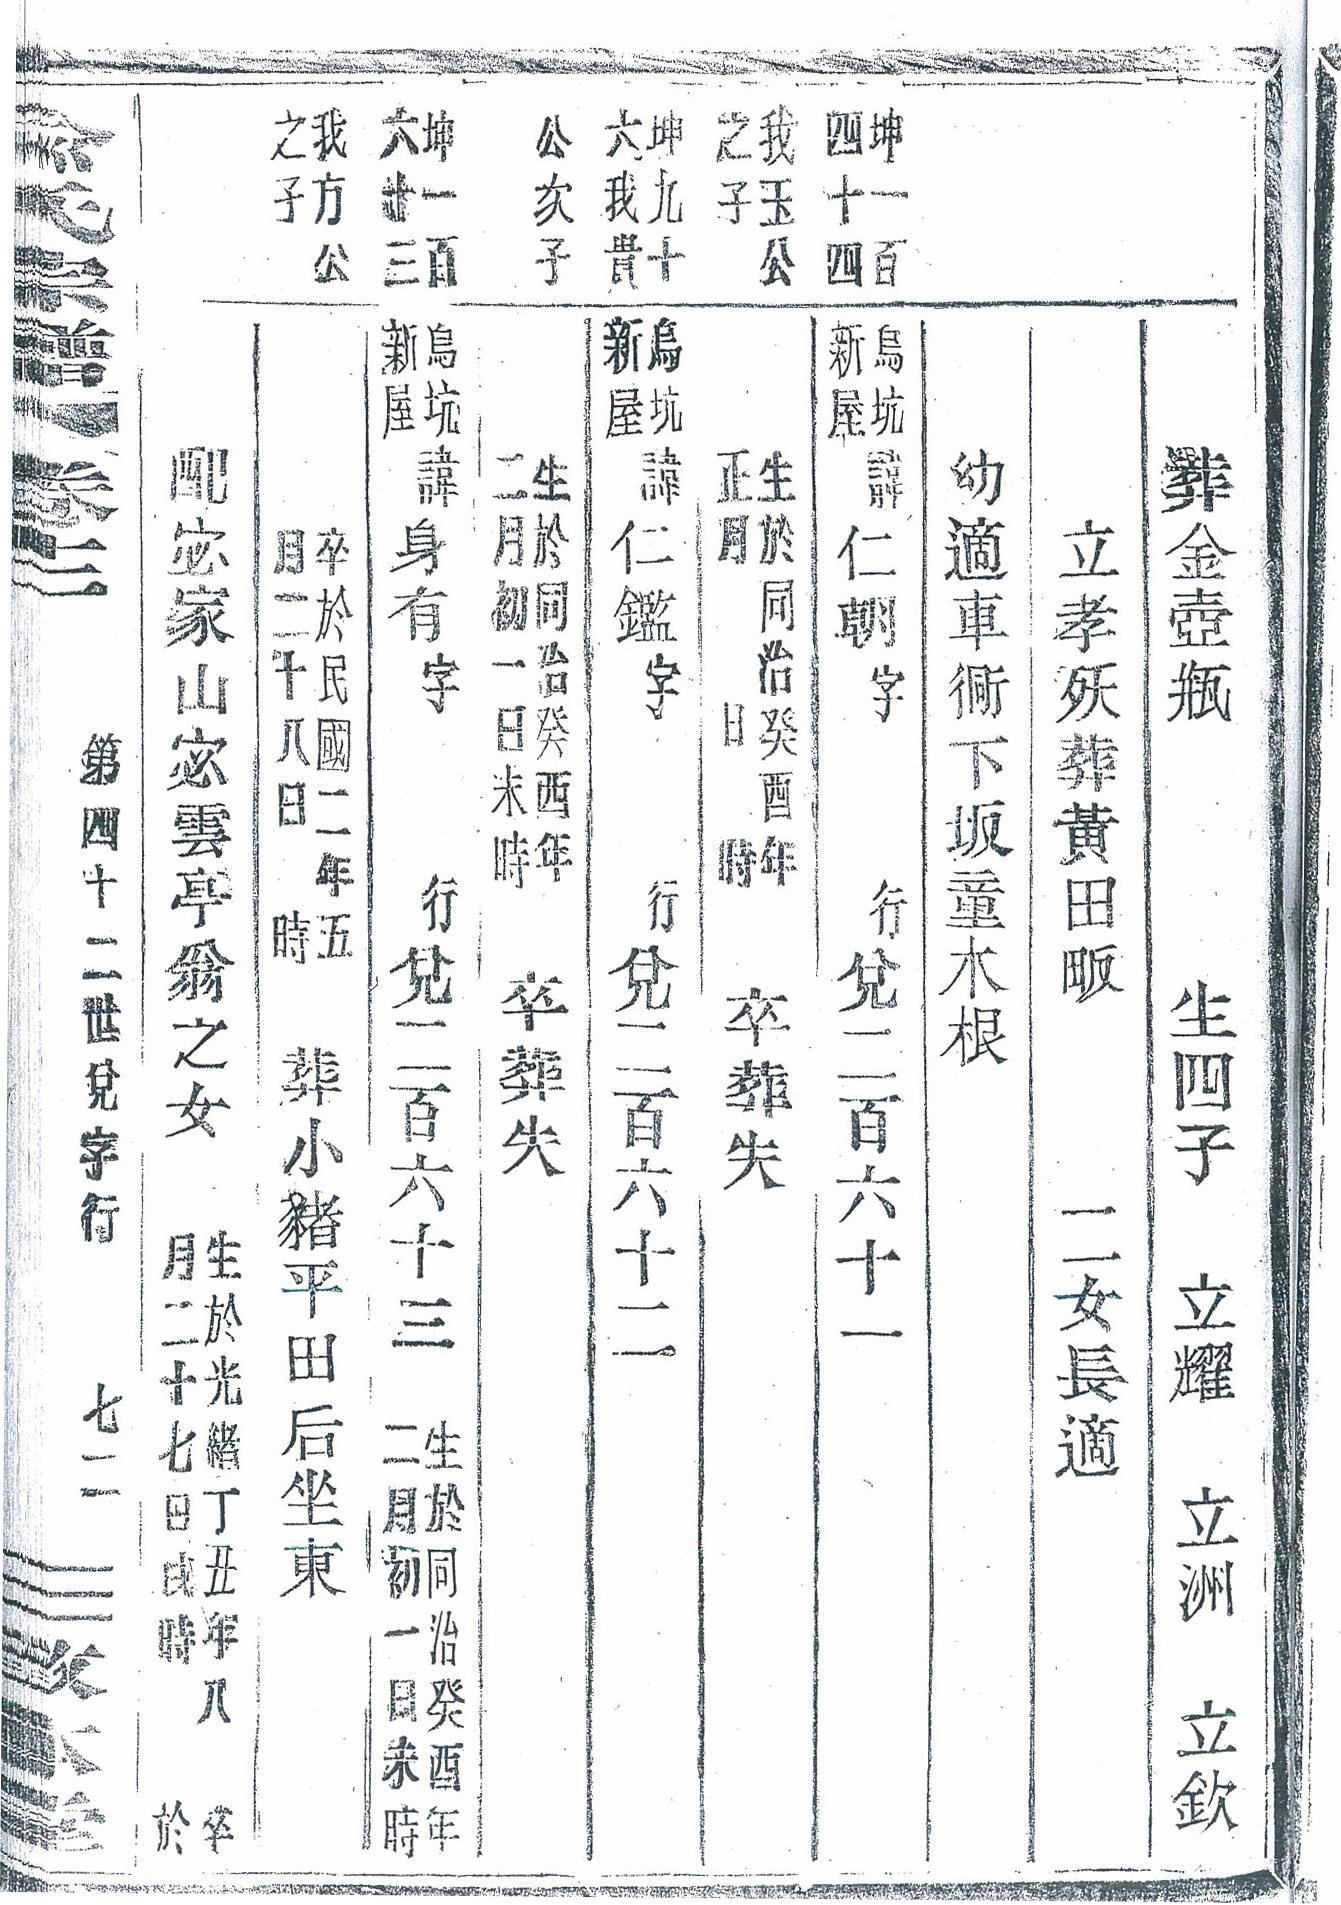 葬金壺瓶　生四子　立耀　立洲　立欽
立孝殀葬黃田畈　二女長適
幼適車衕下坂童木根
坤一百
四十四
烏坑
新屋
諱仁朝字　行兌二百六十一
我玉公
之子
生於同治癸酉年
正月　日　時
卒葬失
坤九十
六我貴
烏坑
新屋
諱仁鑑字　行兌二百六十二
公次子
生於同治癸酉年
二月初一日未時
卒葬失
坤一百
六廿三
烏坑
新屋
諱身有字　行兌二百六十三
生於同治癸酉年
二月初一日未時
我方公
之子
卒於民國二年五
月二十八日　時
葬小豬平田后坐東
配宓家山宓雲亭翁之女
生於光緒丁丑年八
月二十七日戌時
卒
於
氏宗譜　卷二
第四十二世兌字行　七二